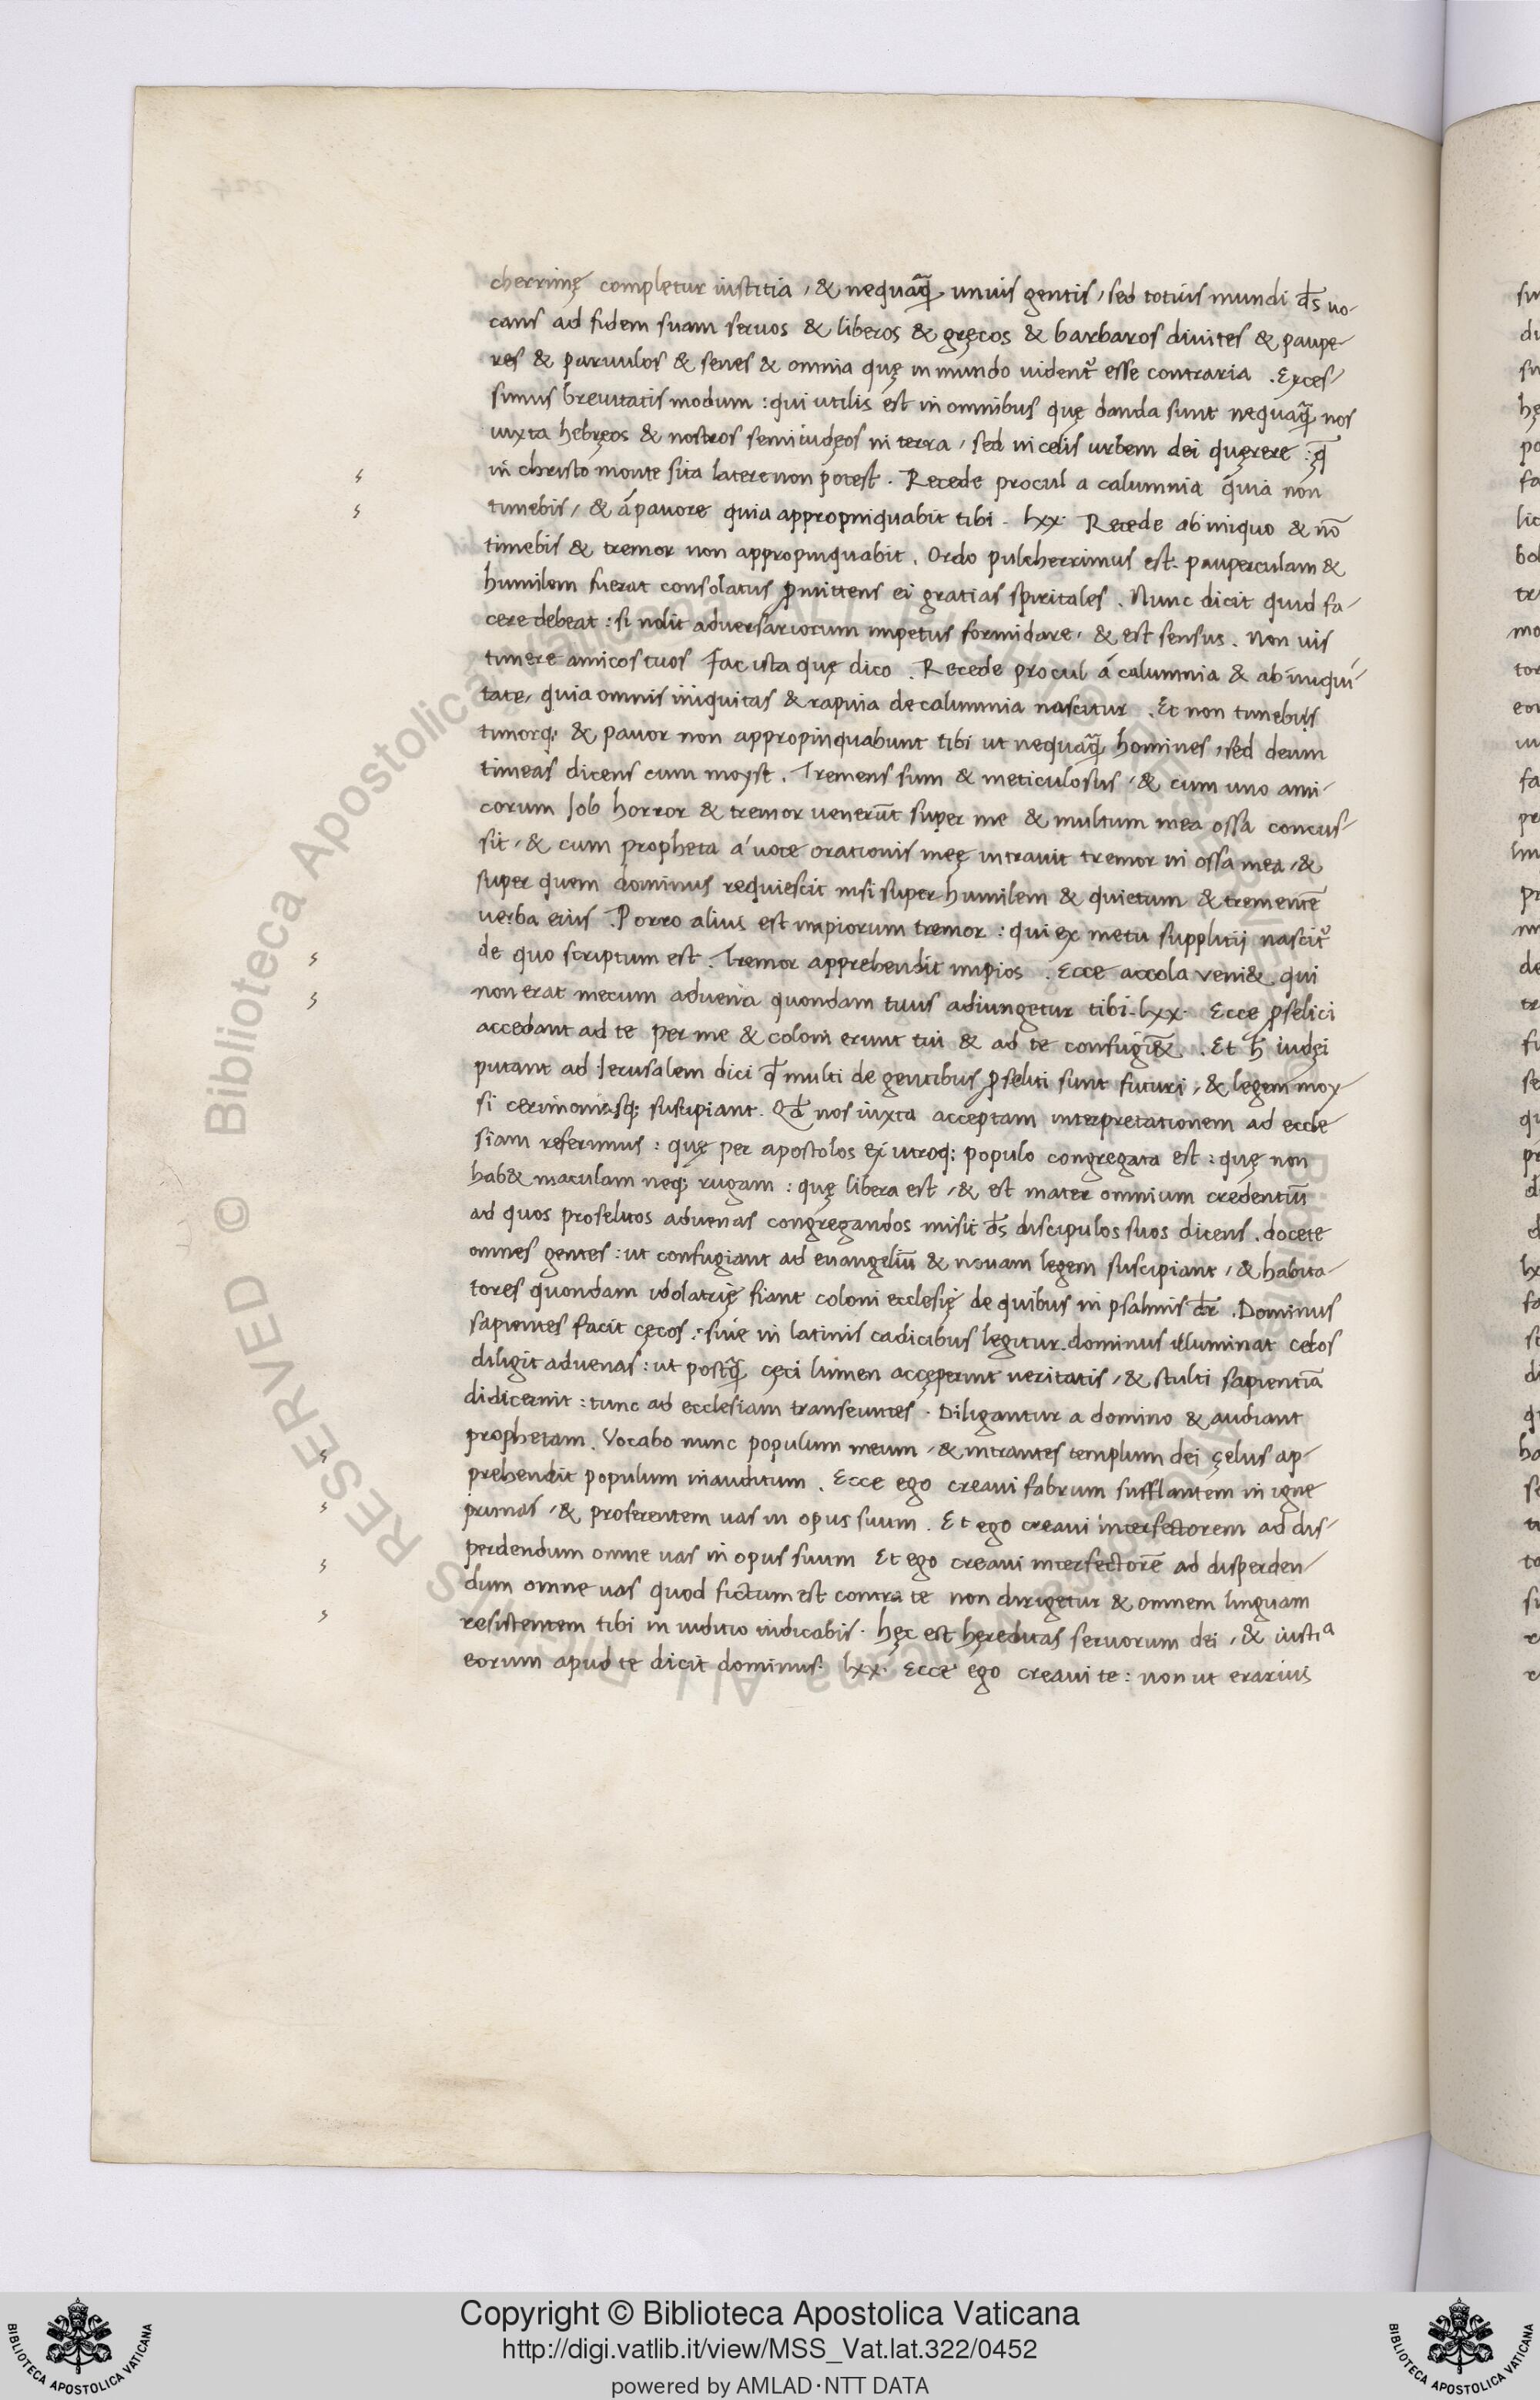 cherrimę completur iustitia, & nequaq̃ unius gentis, sed totius mundi d̄s uo-
cans ad fidem suam seruos & liberos & gręcos & barbaros diuites & paupe-
res & paruulos & senes & omnia quę in mundo uident᷑ esse contraria. Exces-
simus breuitatis modum: qui utilis est in omnibus quę danda sunt nequaq̃ nos
iuxta hebręos & nostros semiiudęos in terra, sed in celis urbem dei quęrere: q̄
in christo monte sita latere non potest. Recede procul a calumnia quia non
timebis, & á pauore quia appropinquabit tibi. lxx. Recede ab iniquo & nō
timebis & tremor non appropinquabit. Ordo pulcherrimus est. pauperculam &
humilem fuerat consolatus ꝓmittens ei gratias spiritales. Nunc dicit quid fa-
cere debeat: si nolit aduersariorum impetus formidare, & est sensus. Non uis
timere amicos tuos Fac ista quę dico. Recede procul á calumnia & ab iniqui-
tate, quia omnis iniquitas & rapina de calumnia nascitur. Et non timebis
timorq; & pauor non appropinquabunt tibi ut nequaq̃ homines, sed deum
timeas dicens cum moysi. Tremens sum & meticulosus, & cum uno ami-
corum Iob horror & tremor uenerūt super me & multum mea ossa concus-
sit, & cum propheta a uoce orationis meę intrauit tremor in ossa mea, &
super quem dominus requiescit nisi super humilem & quietum & trementē
uerba eius. Porro alius est impiorum tremor: qui ex metu supplicij nascit᷑
de quo scriptum est. Tremor apprehendit impios. Ecce accola veni& qui
non erat mecum aduena quondam tuus adiungetur tibi. lxx. Ecce ꝓselici
accedant ad te per me & coloni erunt tui & ad te confugi&. Et h̄ iudęi
putant ad Ierusalem dici q̄ multi de gentibus ꝓseliti sunt futuri, & legem moy-
si cerimoniasq; suscipiant. Qd̄ nos iuxta acceptam interpretationem ad eccle
siam referimus: quę per apostolos ex utroq; populo congregata est: quę non
hab& maculam neq; rugam: quę libera est, & est mater omnium credentiū
ad quos proselitos aduenas congregandos misit d̄s discipulos suos dicens. docete
omnes gentes: ut confugiant ad euangeliū & nouam legem suscipiant, & habita-
tores quondam idolatrię fiant coloni ecclesię de quibus in psalmis dr̄. Dominus
sapientes facit cęcos: siue in latinis codicibus legitur. dominus illuminat cecos
diligit aduenas: ut postq̃ cęci lumen accęperint ueritatis, & stulti sapientiā
didicerint: tunc ad ecclesiam transeuntes. Diligantur a domino & audiant
prophetam. Vocabo nunc populum meum, & intrantes templum dei çelus ap-
prehendit populum inauditum. Ecce ego creaui fabrum sufflantem in igne
prunas, & proferentem uas in opus suum. Et ego creaui interfectorem ad dis-
perdendum omne uas in opus suum Et ego creaui interfectorē ad disperden-
dum omne uas quod fictum est contra te non dirigetur & omnem linguam
resistentem tibi in iuditio iudicabis. hęc est hęreditas seruorum dei, & iustiᵃ
eorum apud te dicit dominus. lxx. Ecce ego creaui te: non ut erarius
Copyright © Biblioteca Apostolica Vaticana
http://digi.vatlib.it/view/MSS_Vat.lat.322/0452
powered by AMLAD·NTT DATA